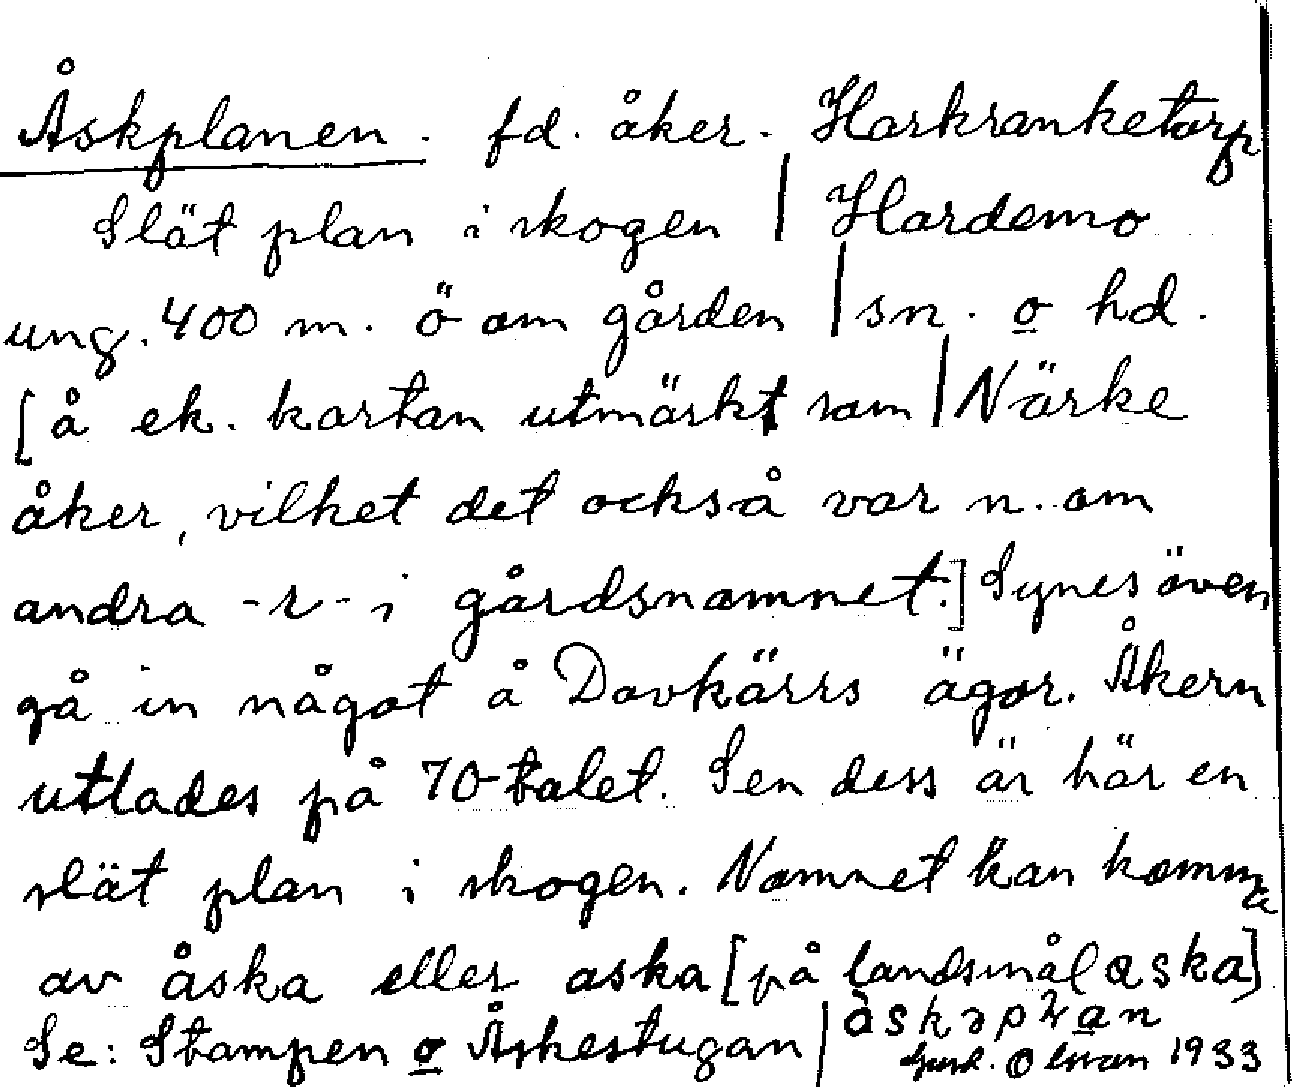 Åskplanen. fd. åker. Harkranketorp
Slät plan i skogen | Hardemo
ung. 400 m. ö om gården | sn. o hd.
[å ek. kartan utmärkt som | Närke
åker, vilket det också var n. om
andra -r- i gårdsnamnet.] Synes även
gå in något å Davkärrs ägor. Åkern
utlades på 70-talet. Sen dess är här en
slät plan i skogen. Namnet kan komma
av åska eller aska [på landsmål aska]
Se: Stampen o Åskestugan |
1933